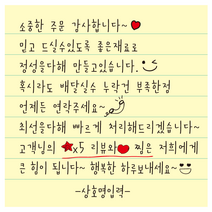 소중한 주문 감사합니다~
믿고 드실수있도록 좋은재료로
정성을다해 만들고있습니다.
혹시라도 배달실수 누락건 부족한점
언제든 연락주세요~
최선을다해 빠르게 처리해드리겠습니다~
고객님의 ★x5 리뷰와 ♥ 찜은 저희에게
큰 힘이 됩니다~ 행복한 하루보내세요~
-상호명입력-